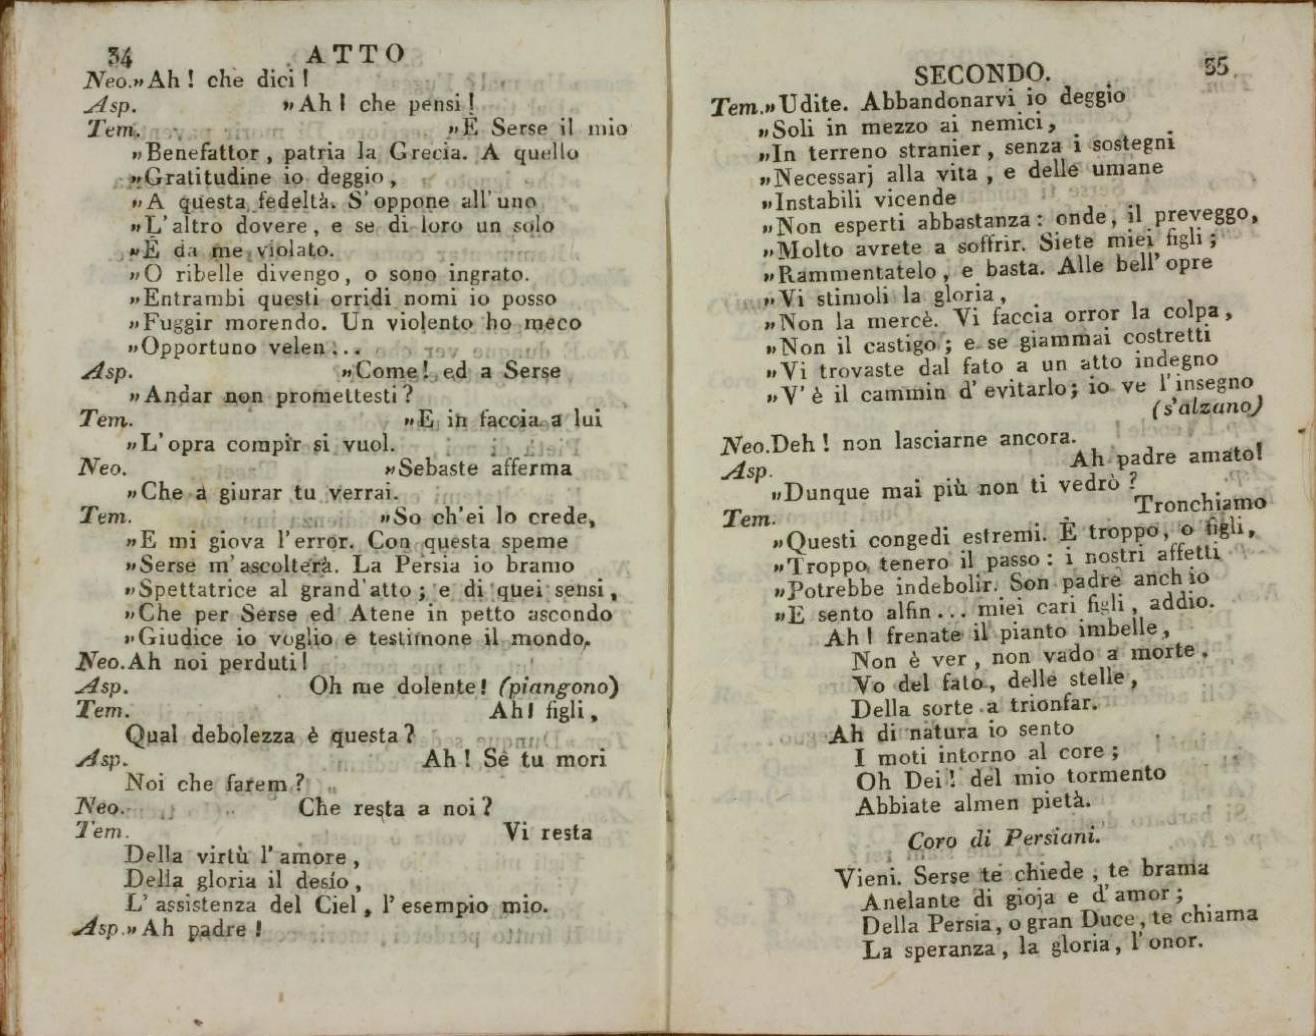 34 ATTO
Neo.„Ah! che dici!
Asp. „Ah! che pensi!
Tem. „È Serse il mio
„Benefattor, patria la Grecia. A quello
„Gratitudine io deggio,
„A questa fedeltà. S'oppone all'uno
„L'altro dovere, e se di loro un solo
„È da me violato.
„O ribelle divengo, o sono ingrato.
„Entrambi questi orridi nomi io posso
„Fuggir morendo. Un violento ho meco
„Opportuno velen...
Asp. „Come! ed a Serse
„Andar non promettesti?
Tem. „E in faccia a lui
„L'opra compir si vuol.
Neo. „Sebaste afferma
„Che a giurar tu verrai.
Tem. „So ch'ei lo crede,
„E mi giova l'error. Con questa speme
„Serse m'ascolterà. La Persia io bramo
„Spettatrice al grand'atto; e di quei sensi,
„Che per Serse ed Atene in petto ascondo
„Giudice io voglio e testimone il mondo.
Neo.Ah noi perduti!
Asp. Oh me dolente! (piangono)
Tem. Ah! figli,
Qual debolezza è questa?
Asp. Ah! Se tu mori
Noi che farem?
Neo. Che resta a noi?
Tem. Vi resta
Della virtù l'amore,
Della gloria il desío,
L'assistenza del Ciel, l'esempio mio.
Asp.„Ah padre!
SECONDO. 35
Tem.„Udite. Abbandonarvi io deggio
„Soli in mezzo ai nemici,
„In terreno stranier, senza i sostegni
„Necessarj alla vita, e delle umane
„Instabili vicende
„Non esperti abbastanza: onde, il preveggo,
„Molto avrete a soffrir. Siete miei figli;
„Rammentatelo, e basta. Alle bell'opre
„Vi stimoli la gloria,
„Non la mercè. Vi faccia orror la colpa,
„Non il castigo; e se giammai costretti
„Vi trovaste dal fato a un atto indegno
„V'è il cammin d'evitarlo; io ve l'insegno
(s'alzano)
Neo.Deh! non lasciarne ancora.
Asp. Ah padre amato!
„Dunque mai più non ti vedrò?
Tem. Tronchiamo
„Questi congedi estremi. È troppo, o figli,
„Troppo tenero il passo: i nostri affetti
„Potrebbe indebolir. Son padre anch io
„E sento alfin... miei cari figli, addio.
Ah! frenate il pianto imbelle,
Non è ver, non vado a morte.
Vo del fato, delle stelle,
Della sorte a trionfar.
Ah di natura io sento
I moti intorno al core;
Oh Dei! del mio tormento
Abbiate almen pietà.
Coro di Persiani.
Vieni. Serse te chiede, te brama
Anelante di gioja e d'amor;
Della Persia, o gran Duce, te chiama
La speranza, la gloria, l'onor.